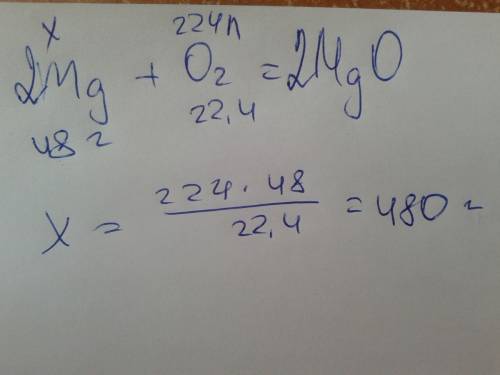 x 224л
2Mg + O₂ = 2MgO
48 г 22,4
x = 224 · 48 / 22,4 = 480 г